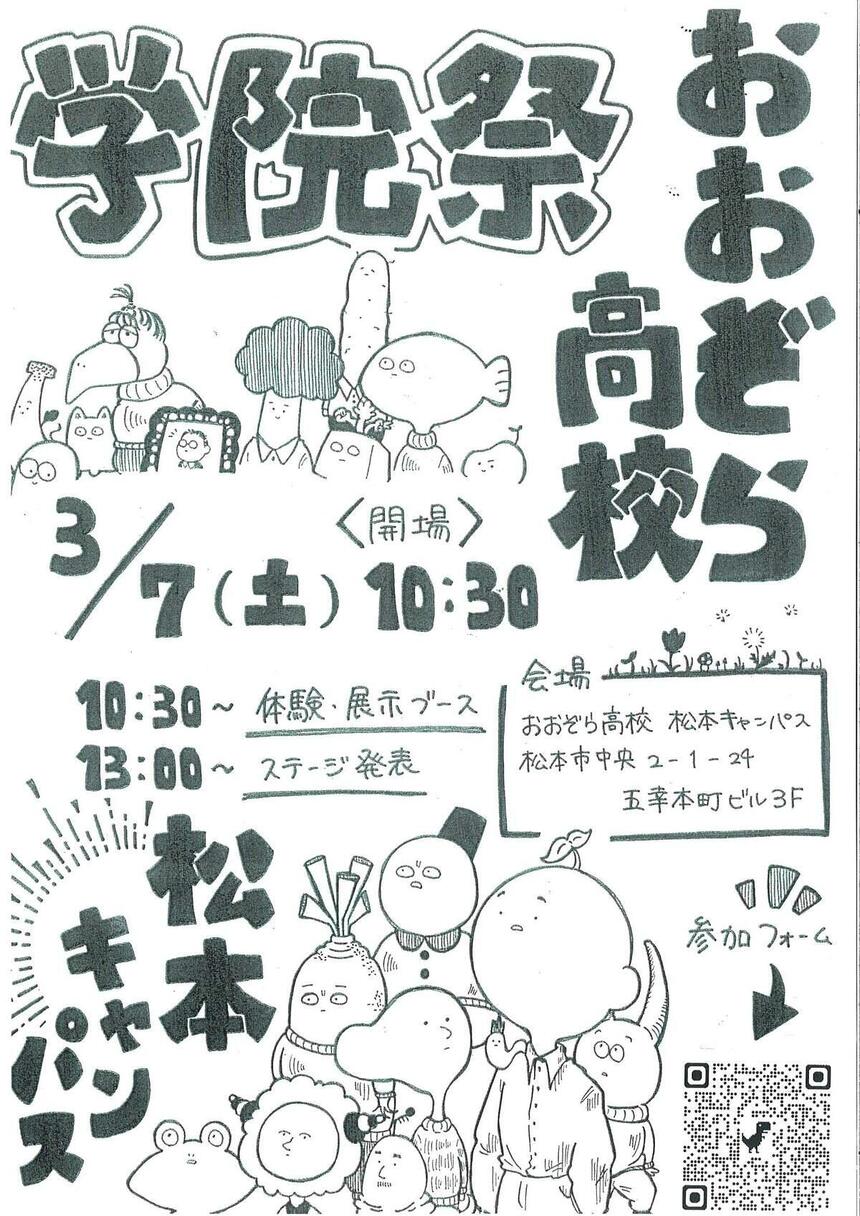 おおぞら
高校
学院祭
3/7(土)
〈開場〉
10:30
10:30～ 体験・展示ブース
13:00～ ステージ発表
会場
おおぞら高校 松本キャンパス
松本市中央2-1-24
五幸本町ビル3F
松本
キャンパス
参加フォーム